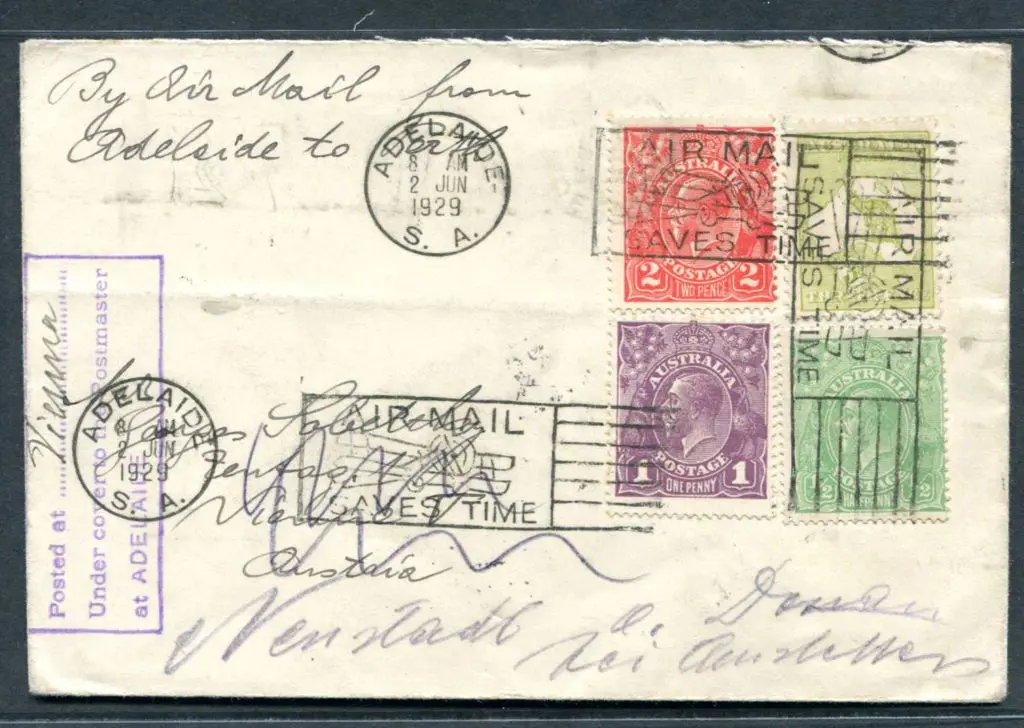 By Air Mail from
Adelaide to Perth
ADELAIDE
8 AM
2 JUN
1929
S. A.
AIR MAIL
SAVES TIME
AUSTRALIA
POSTAGE
2 2
TWO PENCE
AIR MAIL
SAVES TIME
AUSTRALIA
POSTAGE
1 1
ONE PENNY
AUSTRALIA
POSTAGE
Posted at Vienna
Under cover to the Postmaster
at ADELAIDE
ADELAIDE
8 AM
2 JUN
1929
S. A.
AIR MAIL
SAVES TIME
Austria
Neustadt a. Donau
bei Amstetten